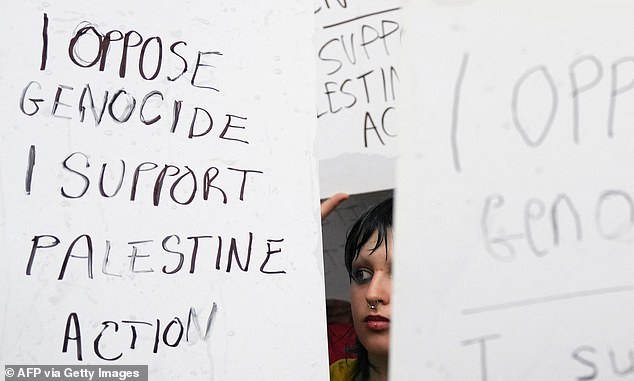 I OPPOSE
GENOCIDE
I SUPPORT
PALESTINE
ACTION
I SUPP
LESTIN
AC
I OPP
Geno
I su
© AFP via Getty Images